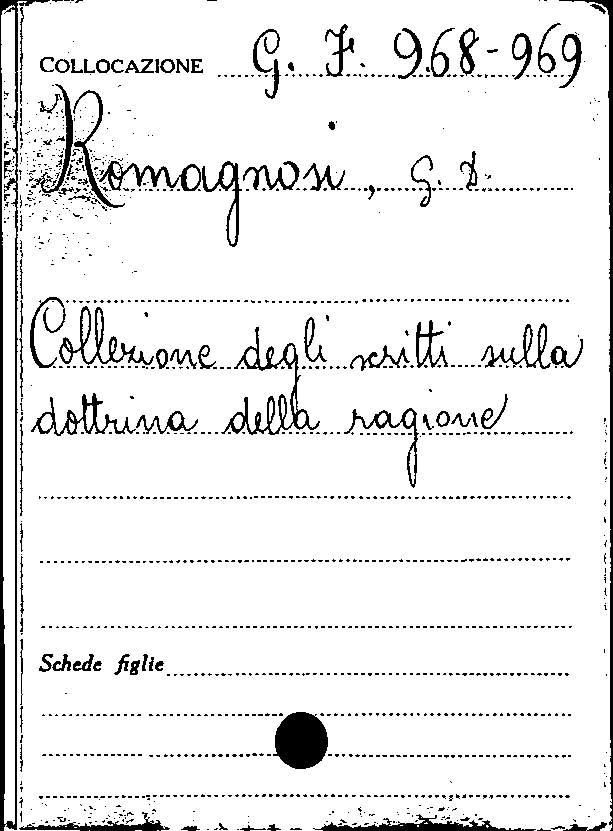 COLLOCAZIONE G. F. 968-969
Romagnosi, G. D.
Collezione degli scritti sulla
dottrina della ragione
Schede figlie